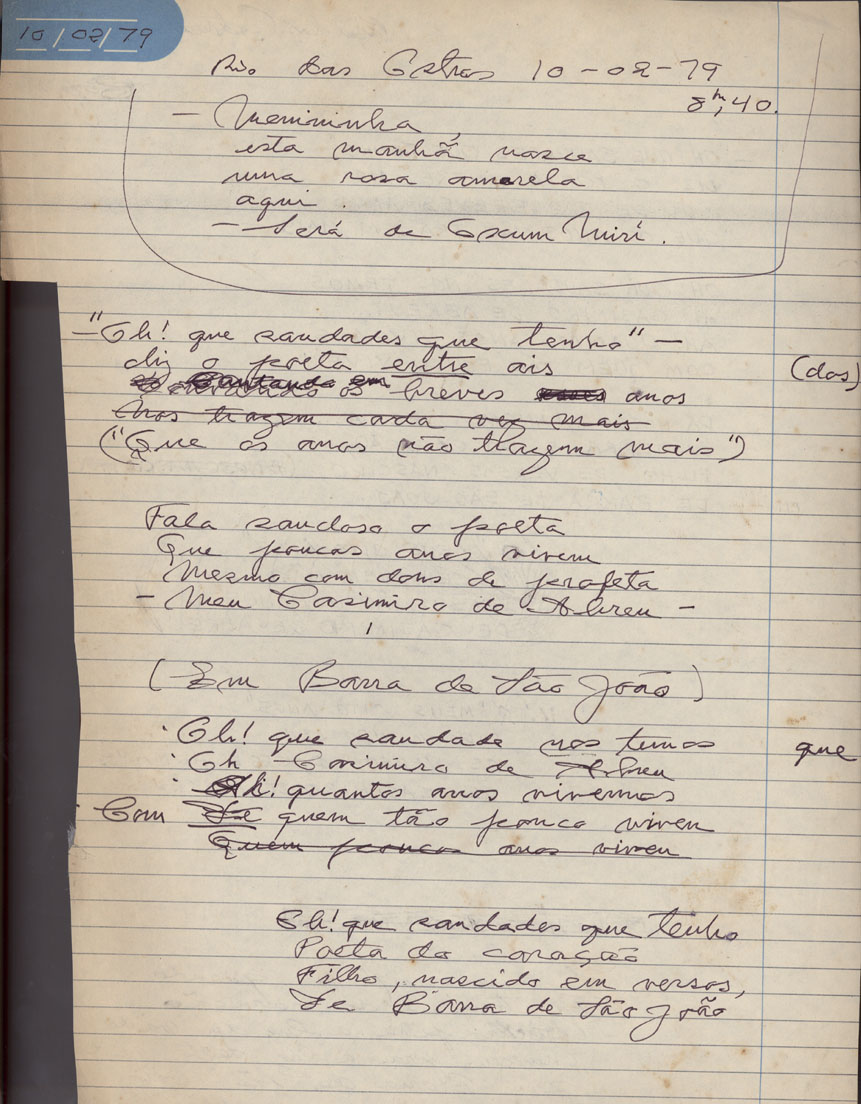 10/02/79
Rio das Ostras 10-02-79
8h,40.
- Menininha,
esta manhã nasce
uma rosa amarela
aqui.
- Será de Oxum Mirí.
- "Oh! que saudades que tenho" -
diz o poeta entre ais (dos)
cantando em os breves anos
Anos trazem cada vez mais
("Que os anos não trazem mais")
Fala saudoso o poeta
Que poucos anos viveu
Mesmo com dons de profeta
- Meu Casimiro de Abreu -
(Em Barra de São João)
Oh! que saudade nos temos que
Oh Casimiro de Abreu
Ah! quantos anos vivemos
Com De quem tão pouco viveu
Quem poucos anos viveu
Oh! que saudades que tenho
Poeta do coração
Filho, nascido em versos,
De Barra de São João